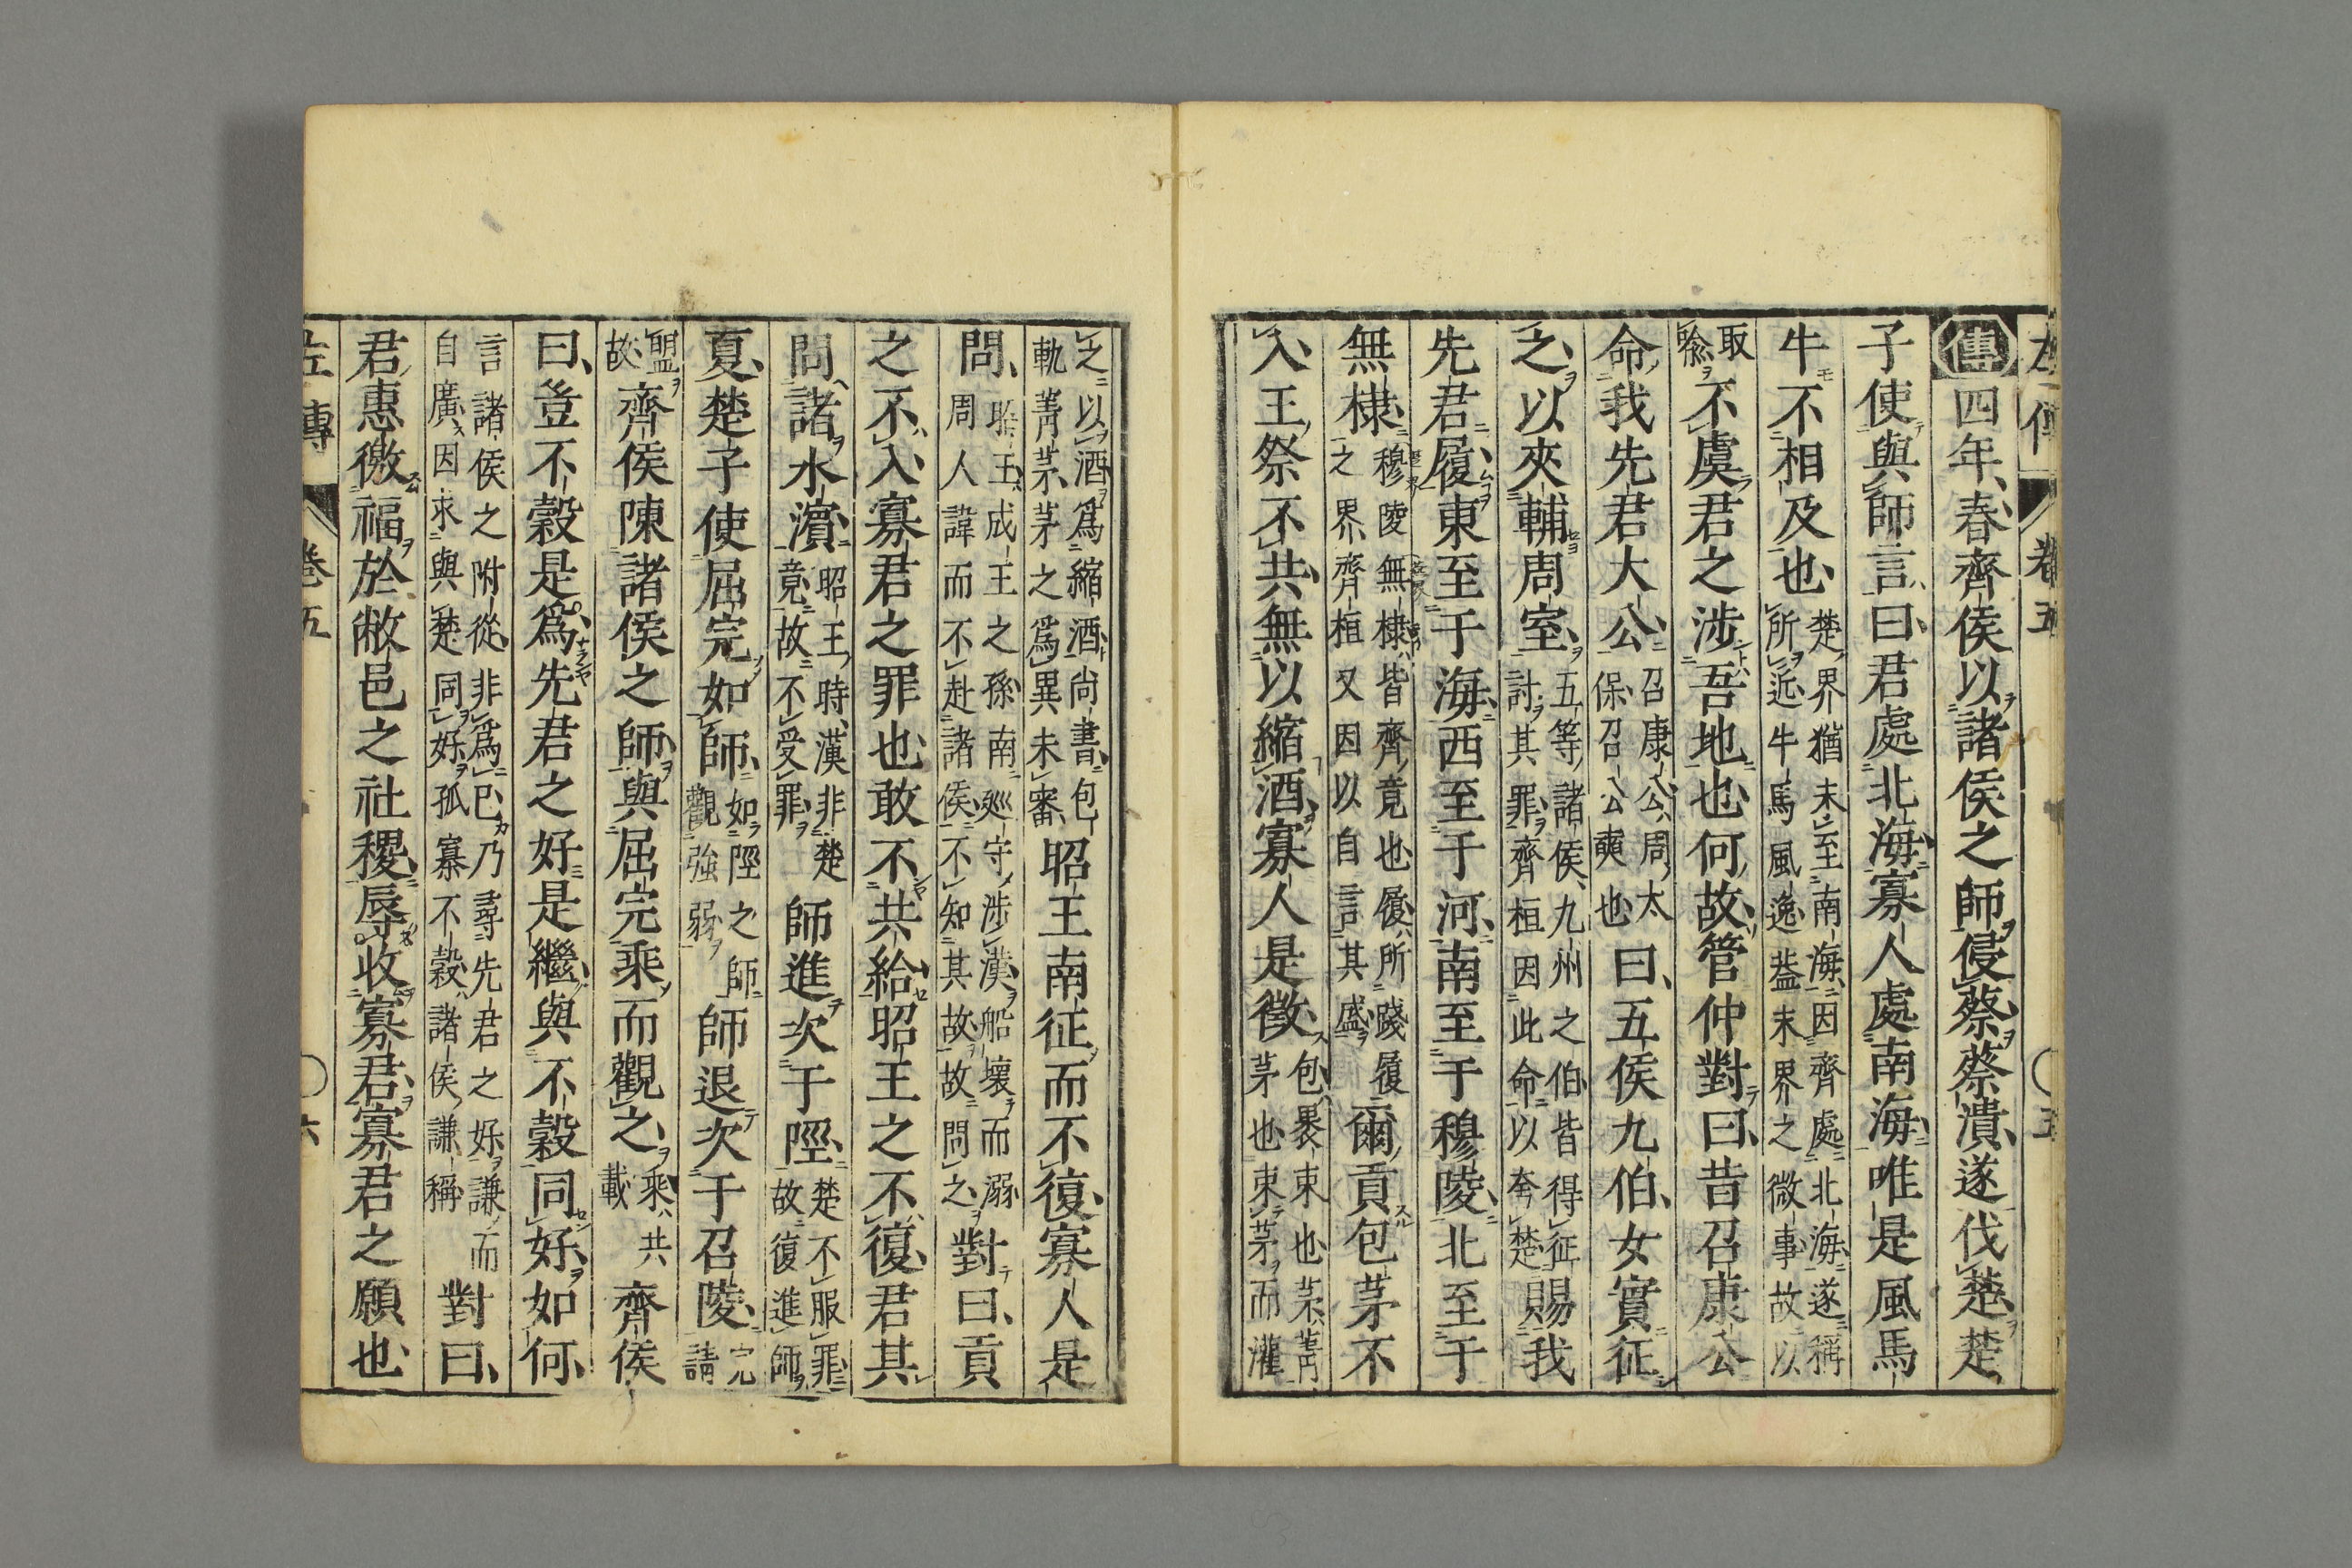 左傳 卷五 〇五
傳四年春齊侯以諸侯之師侵蔡蔡潰遂伐楚楚
子使與師言曰君處北海寡人處南海唯是風馬
牛不相及也楚界猶未至南海因齊處北海遂稱所近牛馬風逸葢末界之微事故以
取喻不虞君之涉吾地也何故管仲對曰昔召康公
命我先君大公召康公周太保召公奭也曰五侯九伯女實征
之以夾輔周室五等諸侯九州之伯皆得征討其罪齊桓因此命以夸楚賜我
先君履東至于海西至于河南至于穆陵北至于
無棣穆陵無棣皆齊竟也履所踐履之界齊桓又因以自言其盛爾貢包茅不
入王祭不共無以縮酒寡人是徵包裹束也茅菁茅也束茅而灌
之以酒爲縮酒尚書包軌菁茅茅之爲異未審昭王南征而不復寡人是
問昭王成王之孫南廵守涉漢船壞而溺周人諱而不赴諸侯不知其故故問之對曰貢
之不入寡君之罪也敢不共給昭王之不復君其
問諸水濱昭王時漢非楚竟故不受罪師進次于陘楚不服罪故復進師
夏楚子使屈完如師如陘之師觀強弱師退次于召陵完請
盟故齊侯陳諸侯之師與屈完乘而觀之乘共載齊侯
曰豈不穀是爲先君之好是繼與不穀同好如何
言諸侯之附從非爲己乃尋先君之好謙而自廣因求與楚同好孤寡不穀諸侯謙稱對曰
君惠徼福於敝邑之社稷辱收寡君寡君之願也
左傳 卷五 〇六